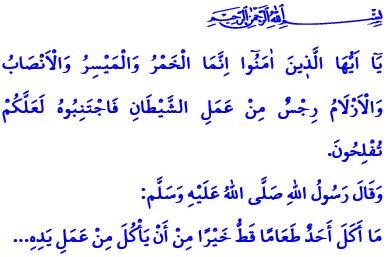 بِسْمِ اللّٰهِ الرَّحْمٰنِ الرَّحِيمِ
يَٓا اَيُّهَا الَّذٖينَ اٰمَنُٓوا اِنَّمَا الْخَمْرُ وَالْمَيْسِرُ وَالْاَنْصَابُ
وَالْاَزْلَامُ رِجْسٌ مِنْ عَمَلِ الشَّيْطَانِ فَاجْتَنِبُوهُ لَعَلَّكُمْ
تُفْلِحُونَ.
وَقَالَ رَسُولُ اللّٰهِ صَلَّى اللّٰهُ عَلَيْهِ وَسَلَّمَ:
مَا أَكَلَ أَحَدٌ طَعَامًا قَطُّ خَيْرًا مِنْ أَنْ يَأْكُلَ مِنْ عَمَلِ يَدِهِ...